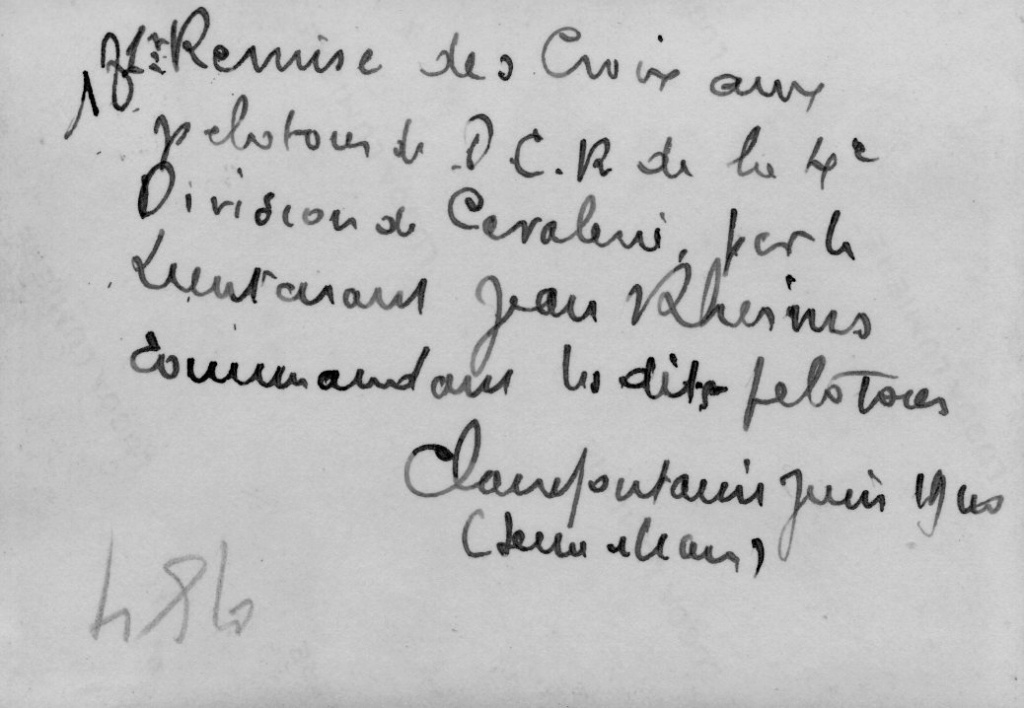 Remise des Croix aux
pelotons de D.C.R de la 4e
Division de Cavalerie, par le
Lieutenant Jean Rheims
commandant les dits pelotons
Clairefontaine Juin 1940
(Seine et Oise)
486